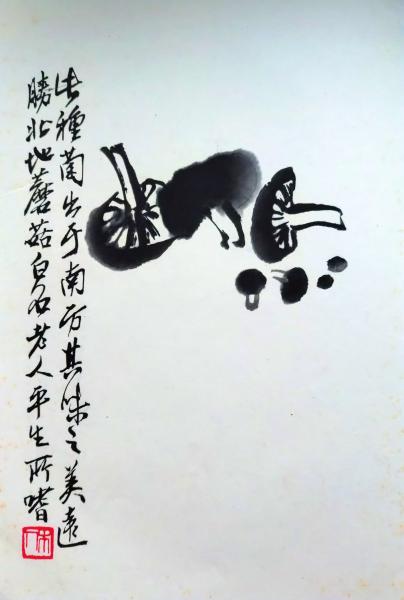 此種菌出于南方其味之美遠
勝北地蘑菇白石老人平生所嗜